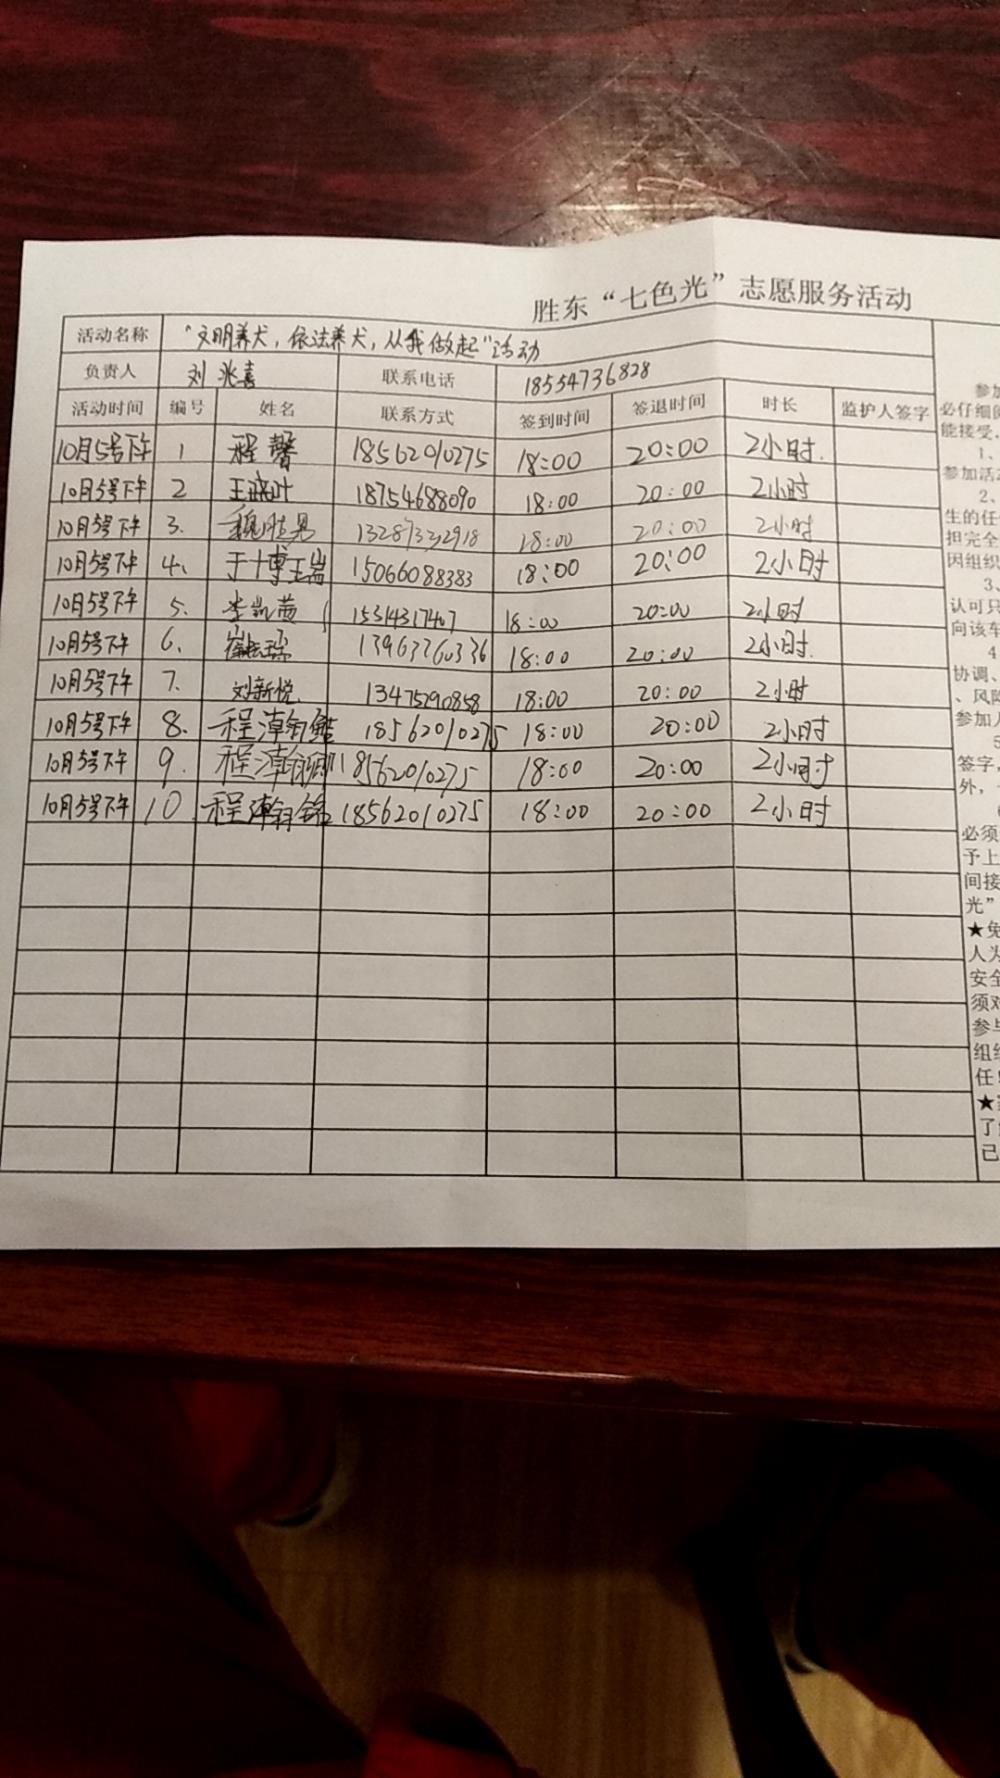 胜东“七色光”志愿服务活动
活动名称 “文明养犬，依法养犬，从我做起”活动
负责人 刘兆喜 联系电话 18554736828
活动时间 编号 姓名 联系方式 签到时间 签退时间 时长 监护人签字
10月5号下午 1 程馨 18562010275 18:00 20:00 2小时.
10月5号下午 2 王晓叶 18754688090 18:00 20:00 2小时
10月5号下午 3. 魏胜男 13287332918 18:00 20:00 2小时
10月5号下午 4. 于博 15066088383 18:00 20:00 2小时
10月5号下午 5. 李凯茜 15314317407 18:00 20:00 2小时
10月5号下午 6. 13963760336 18:00 20:00 2小时.
10月5号下午 7. 刘新悦 13475290858 18:00 20:00 2小时
10月5号下午 8. 程 18562010275 18:00 20:00 2小时
10月5号下午 9. 程 18562010275 18:00 20:00 2小时
10月5号下午 10. 程 铭 18562010275 18:00 20:00 2小时
参加
必仔细阅
能接受，
1、
参加活动
2、
生的任
担完全
因组织
3、
认可只
向该车
4
协调、
、风险
参加人
5
签字，
外，
必须
予上
间接
光”
★免
人为
安全
须对
参与
组织
任！
★
了
己